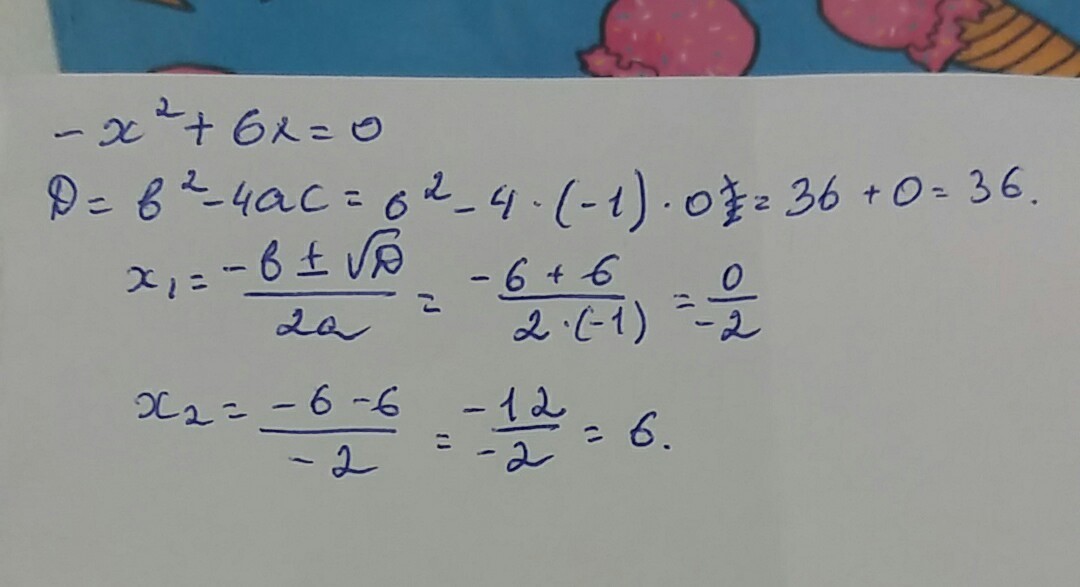 -x² + 6x = 0
D = b² - 4ac = 6² - 4 · (-1) · 0 = 36 + 0 = 36.
x₁ = (-b ± √D) / 2a = (-6 + 6) / (2 · (-1)) = 0 / -2
x₂ = (-6 - 6) / -2 = -12 / -2 = 6.